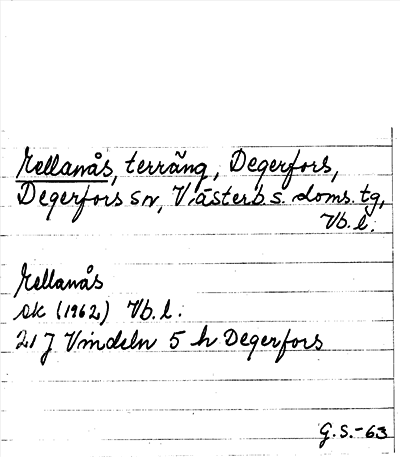 Mellanås, terräng, Degerfors,
Degerfors sn, Västerb s. doms. tg,
Vb. l.
Mellanås
ek (1962) Vb. l.
21 J Vindeln 5 h Degerfors
G.S.-63